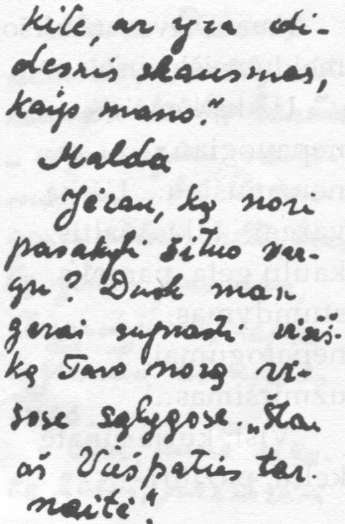 kite, ar yra di-
desnis skausmas,
kaip mano."
Malda
Jėzau, ką nori
pasakyti šituo ver-
gu? Duok man
gerai suprasti visiš-
ką Tavo norą vi-
sose sąlygose. „Štai
aš Viešpaties tar-
naitė".